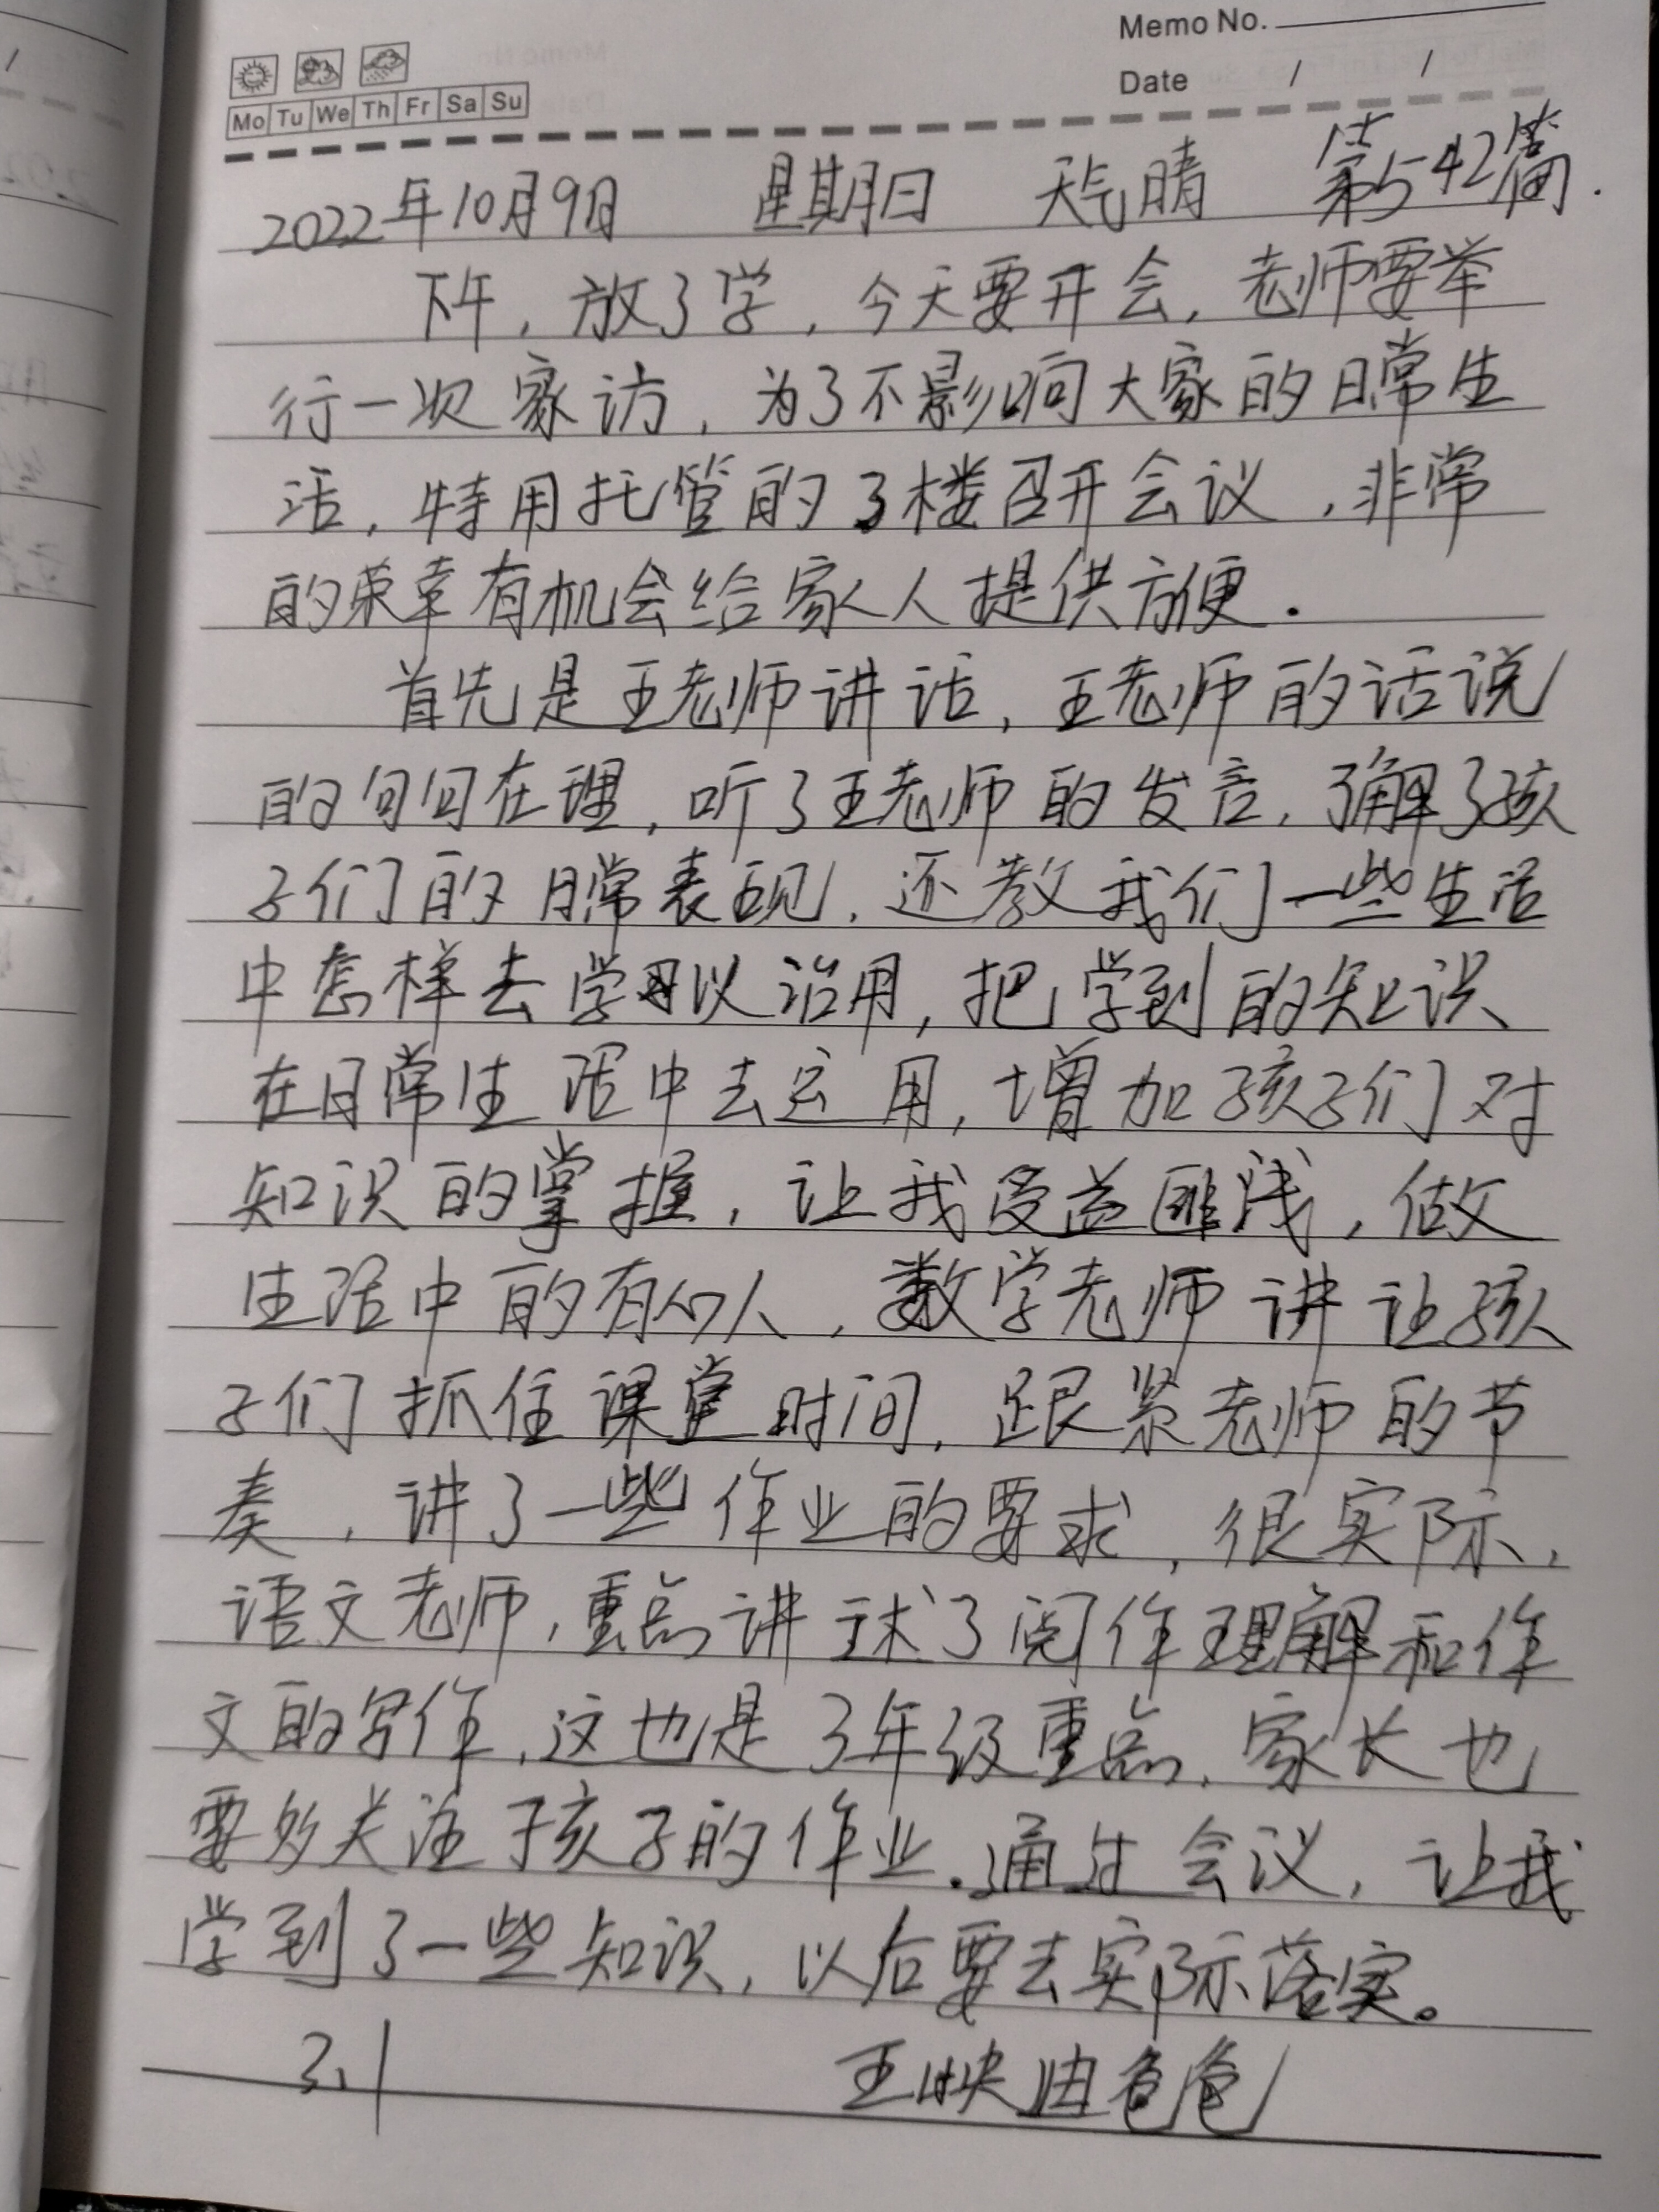 Memo No.
Date / /
Mo Tu We Th Fr Sa Su
2022年10月9日 星期日 天气晴 第542篇.
下午,放了学,今天要开会,老师要举
行一次家访,为了不影响大家的日常生
活,特用托管的3楼召开会议,非常
的荣幸有机会给家人提供方便.
首先是王老师讲话,王老师的话说
的句句在理,听了王老师的发言,了解了孩
子们的日常表现,还教我们一些生活
中怎样去学习以治用,把学到的知识
在日常生活中去运用,增加孩子们对
知识的掌握,让我受益匪浅,做
生活中的有心人,数学老师讲让孩
子们抓住课堂时间,跟紧老师的节
奏,讲了一些作业的要求,很实际,
语文老师,重点讲述了阅作理解和作
文的写作,这也是3年级重点,家长也
要多关注于孩子的作业.通过会议,让我
学到了一些知识,以后要去实际落实。
3.1 王映迪爸爸